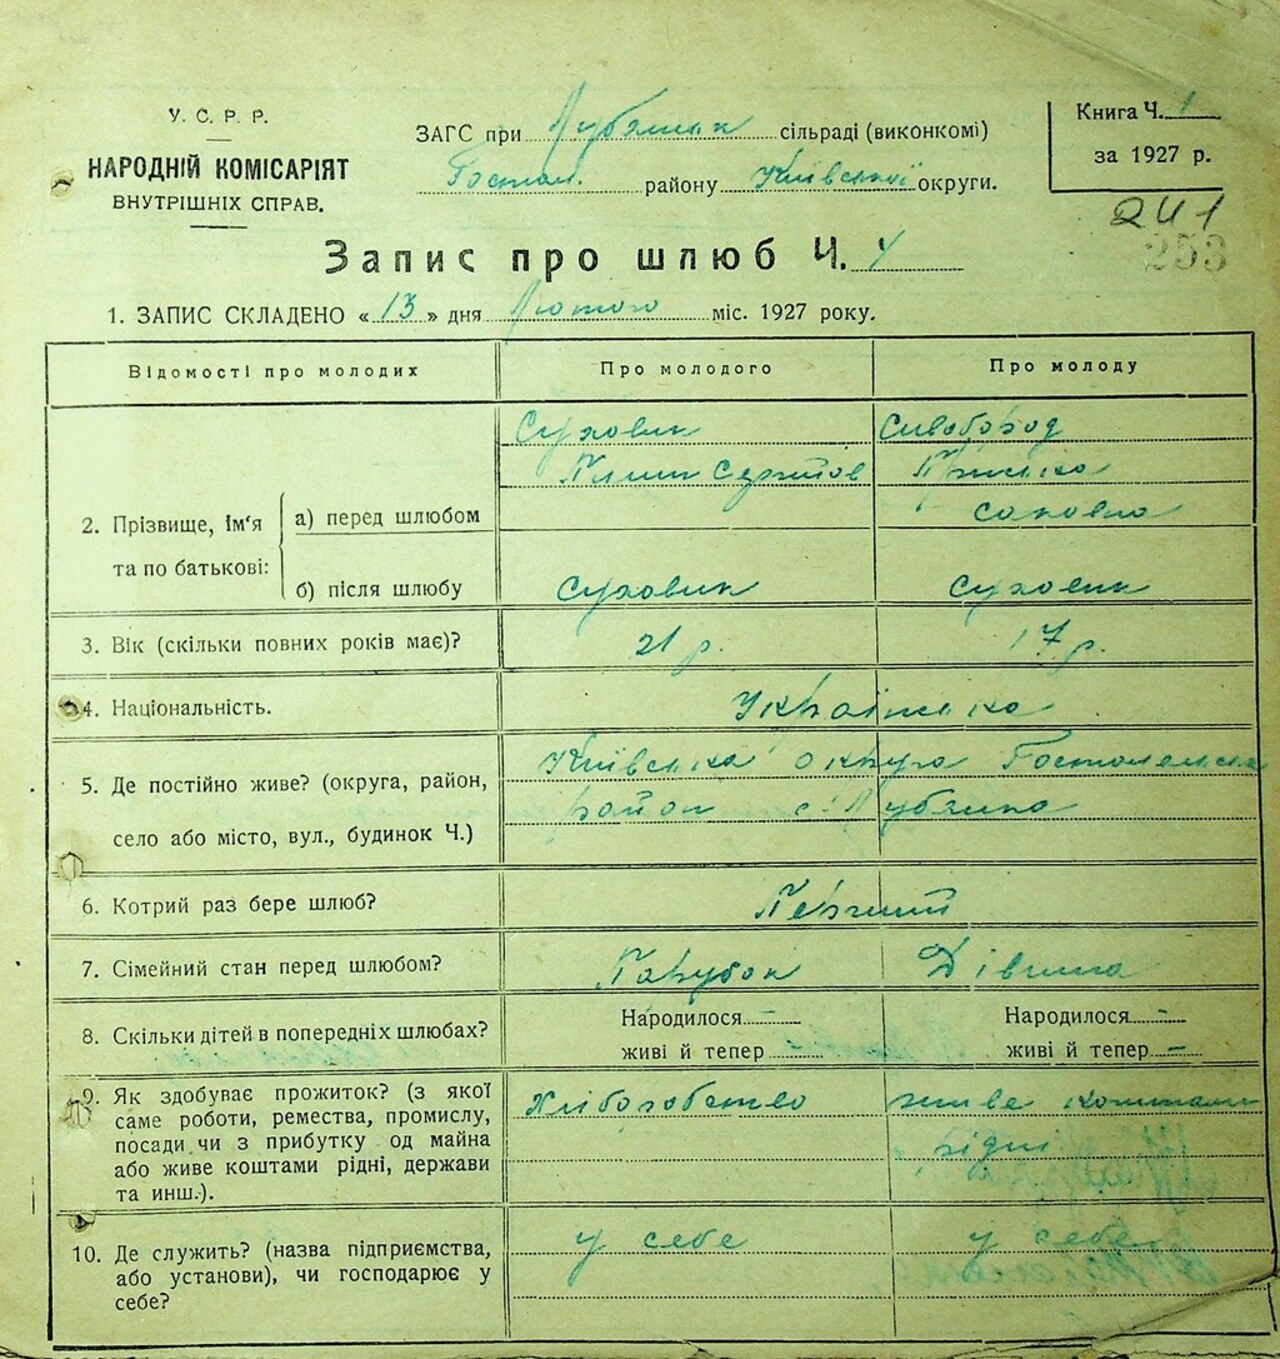 У. С. Р. Р.
НАРОДНІЙ КОМІСАРІЯТ
ВНУТРІШНІХ СПРАВ.
ЗАГС при Лубянськ сільраді (виконкомі)
Гостом. району Київської округи.
Книга Ч. 1
за 1927 р.
241
253
Запис про шлюб Ч. 4
1. ЗАПИС СКЛАДЕНО «13» дня Лютого міс. 1927 року.
Відомості про молодих Про молодого Про молоду
Суховик Сивобород
Пилип Сергіїв
Саковна
2. Прізвище, ім'я та по батькові:
а) перед шлюбом
б) після шлюбу Суховик Суховик
3. Вік (скільки повних років має)? 21 р. 17 р.
4. Національність. Українська
5. Де постійно живе? (округа, район, Київська округа Гостомельськ
село або місто, вул., будинок Ч.) район с. Лубянка
6. Котрий раз бере шлюб? Перший
7. Сімейний стан перед шлюбом? Парубок Дівчина
8. Скільки дітей в попередніх шлюбах? Народилося - Народилося -
живі й тепер - живі й тепер -
9. Як здобуває прожиток? (з якої Хліборобство живе коштами
саме роботи, ремества, промислу, рідні
посади чи з прибутку од майна
або живе коштами рідні, держави
та инш.).
10. Де служить? (назва підприємства, у себе у себе
або установи), чи господарює у
себе?